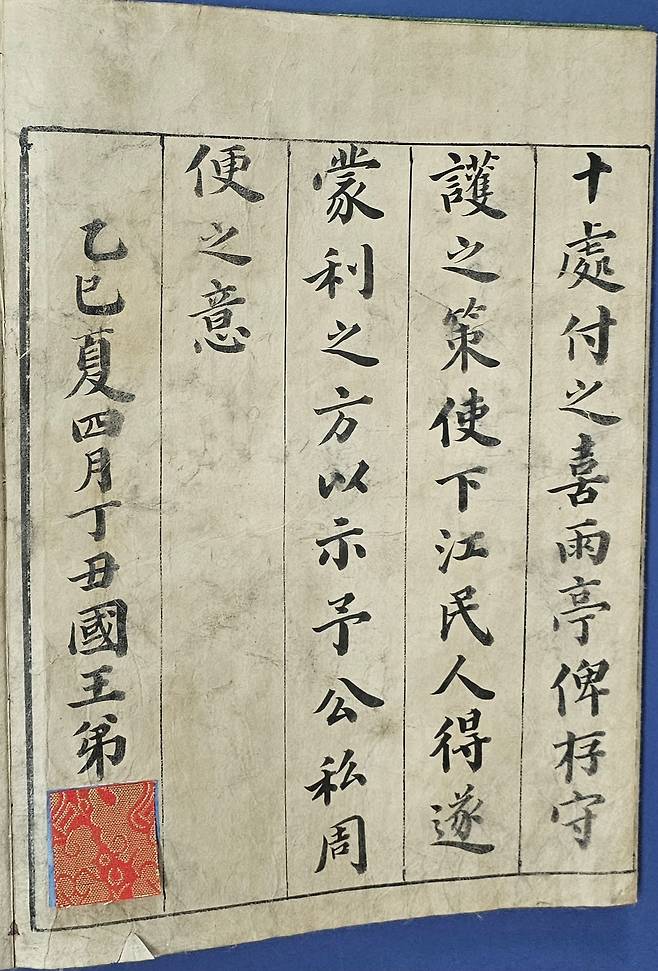 十處付之喜雨亭俾存守
護之策使下江民人得遂
蒙利之方以示予公私周
便之意
乙巳夏四月丁丑國王弟